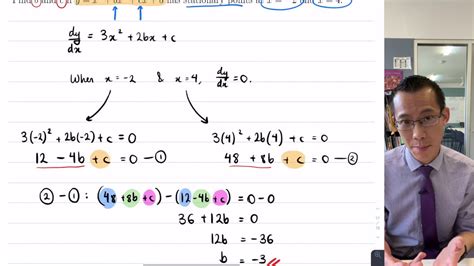 Find b and c if y = x³ + bx² + cx + d has stationary points at x = -2 and x = 4.
dy/dx = 3x² + 2bx + c
When x = -2 & x = 4, dy/dx = 0.
3(-2)² + 2b(-2) + c = 0
12 - 4b + c = 0 — ①
3(4)² + 2b(4) + c = 0
48 + 8b + c = 0 — ②
② - ① : (48 + 8b + c) - (12 - 4b + c) = 0 - 0
36 + 12b = 0
12b = -36
b = -3